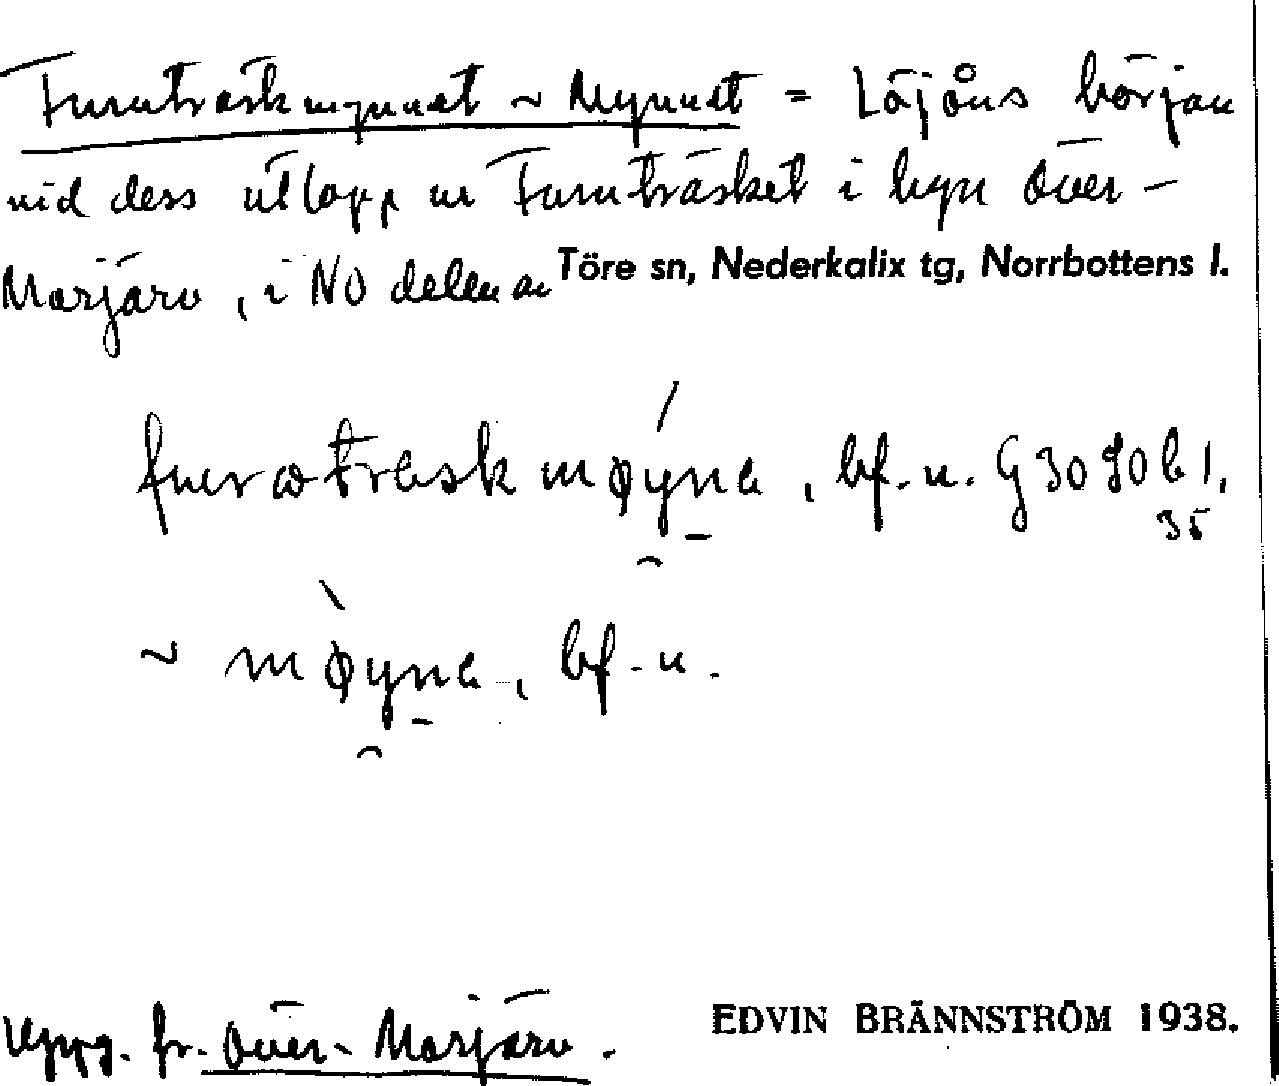 Furuträskmynnet ~ Mynnet = Löjåns början
vid dess utlopp ur Furuträsket i byn Över-
Morjärv, i NO delen av Töre sn, Nederkalix tg, Norrbottens l.
bf. n. G 30 90 b 1.
35
~ møyna, bf. n.
Uppg. fr. Över-Morjärv. EDVIN BRÄNNSTRÖM 1938.